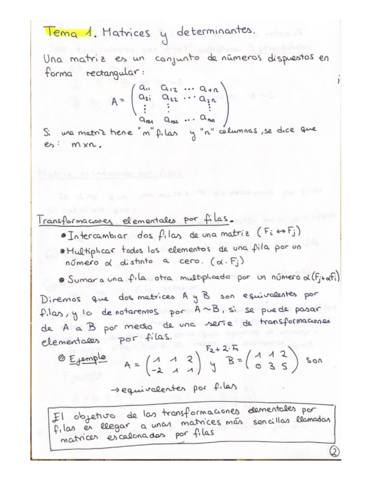 Tema 1. Matrices y determinantes.
Una matriz es un conjunto de números dispuestos en
forma rectangular:
A = ( a11 a12 ... a1n
a21 a22 ... a2n
⋮ ⋮ ⋮
am1 am2 ... amn )
Si una matriz tiene "m" filas y "n" columnas, se dice que
es: m×n.
Transformaciones elementales por filas.
• Intercambiar dos filas de una matriz (Fi ↔ Fj)
• Multiplicar todos los elementos de una fila por un
número α distinto a cero. (α · Fj)
• Sumar a una fila otra multiplicada por un número α (Fj + αFi)
Diremos que dos matrices A y B son equivalentes por
filas, y lo denotaremos por A ~ B, si se puede pasar
de A a B por medio de una serie de transformaciones
elementales por filas.
Ejemplo A = ( 1 1 2 / -2 1 1 ) F2 + 2·F1 y B = ( 1 1 2 / 0 3 5 ) son
→ equivalentes por filas
El objetivo de las transformaciones elementales por
filas es llegar a unas matrices más sencillas llamadas
matrices escalonadas por filas
2